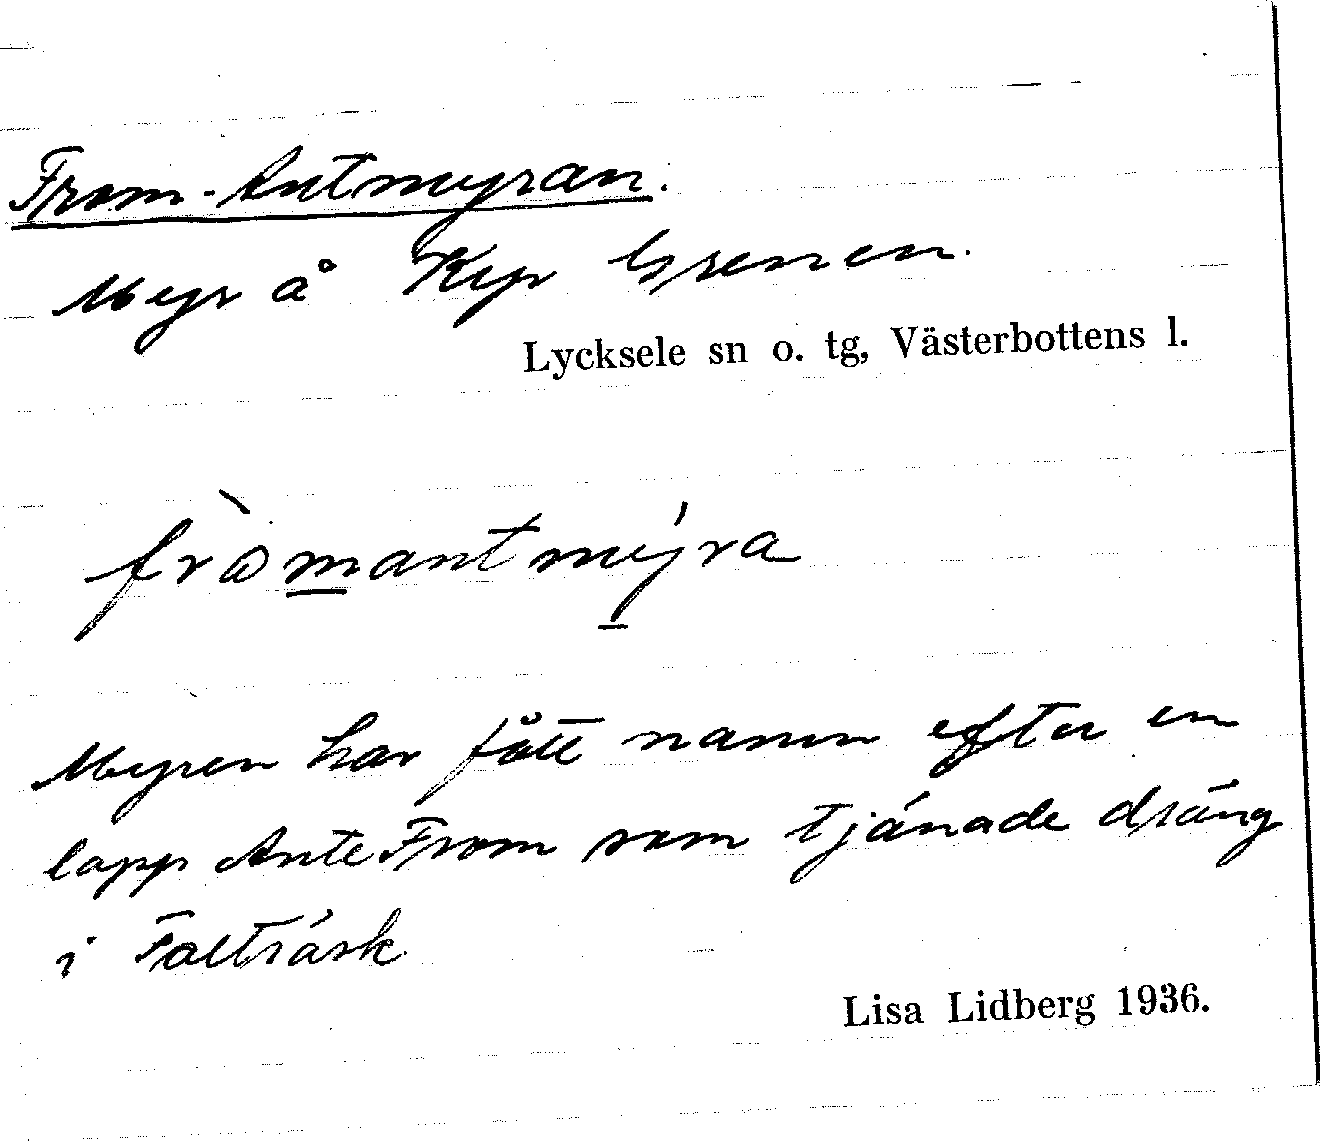 From-Antmyran.
Myr å Kyr Grenen.
Lycksele sn o. tg, Västerbottens l.
fròmantmýra
Myren har fått namn efter en
lapp Ante From som tjänade dräng
i Falträsk
Lisa Lidberg 1936.